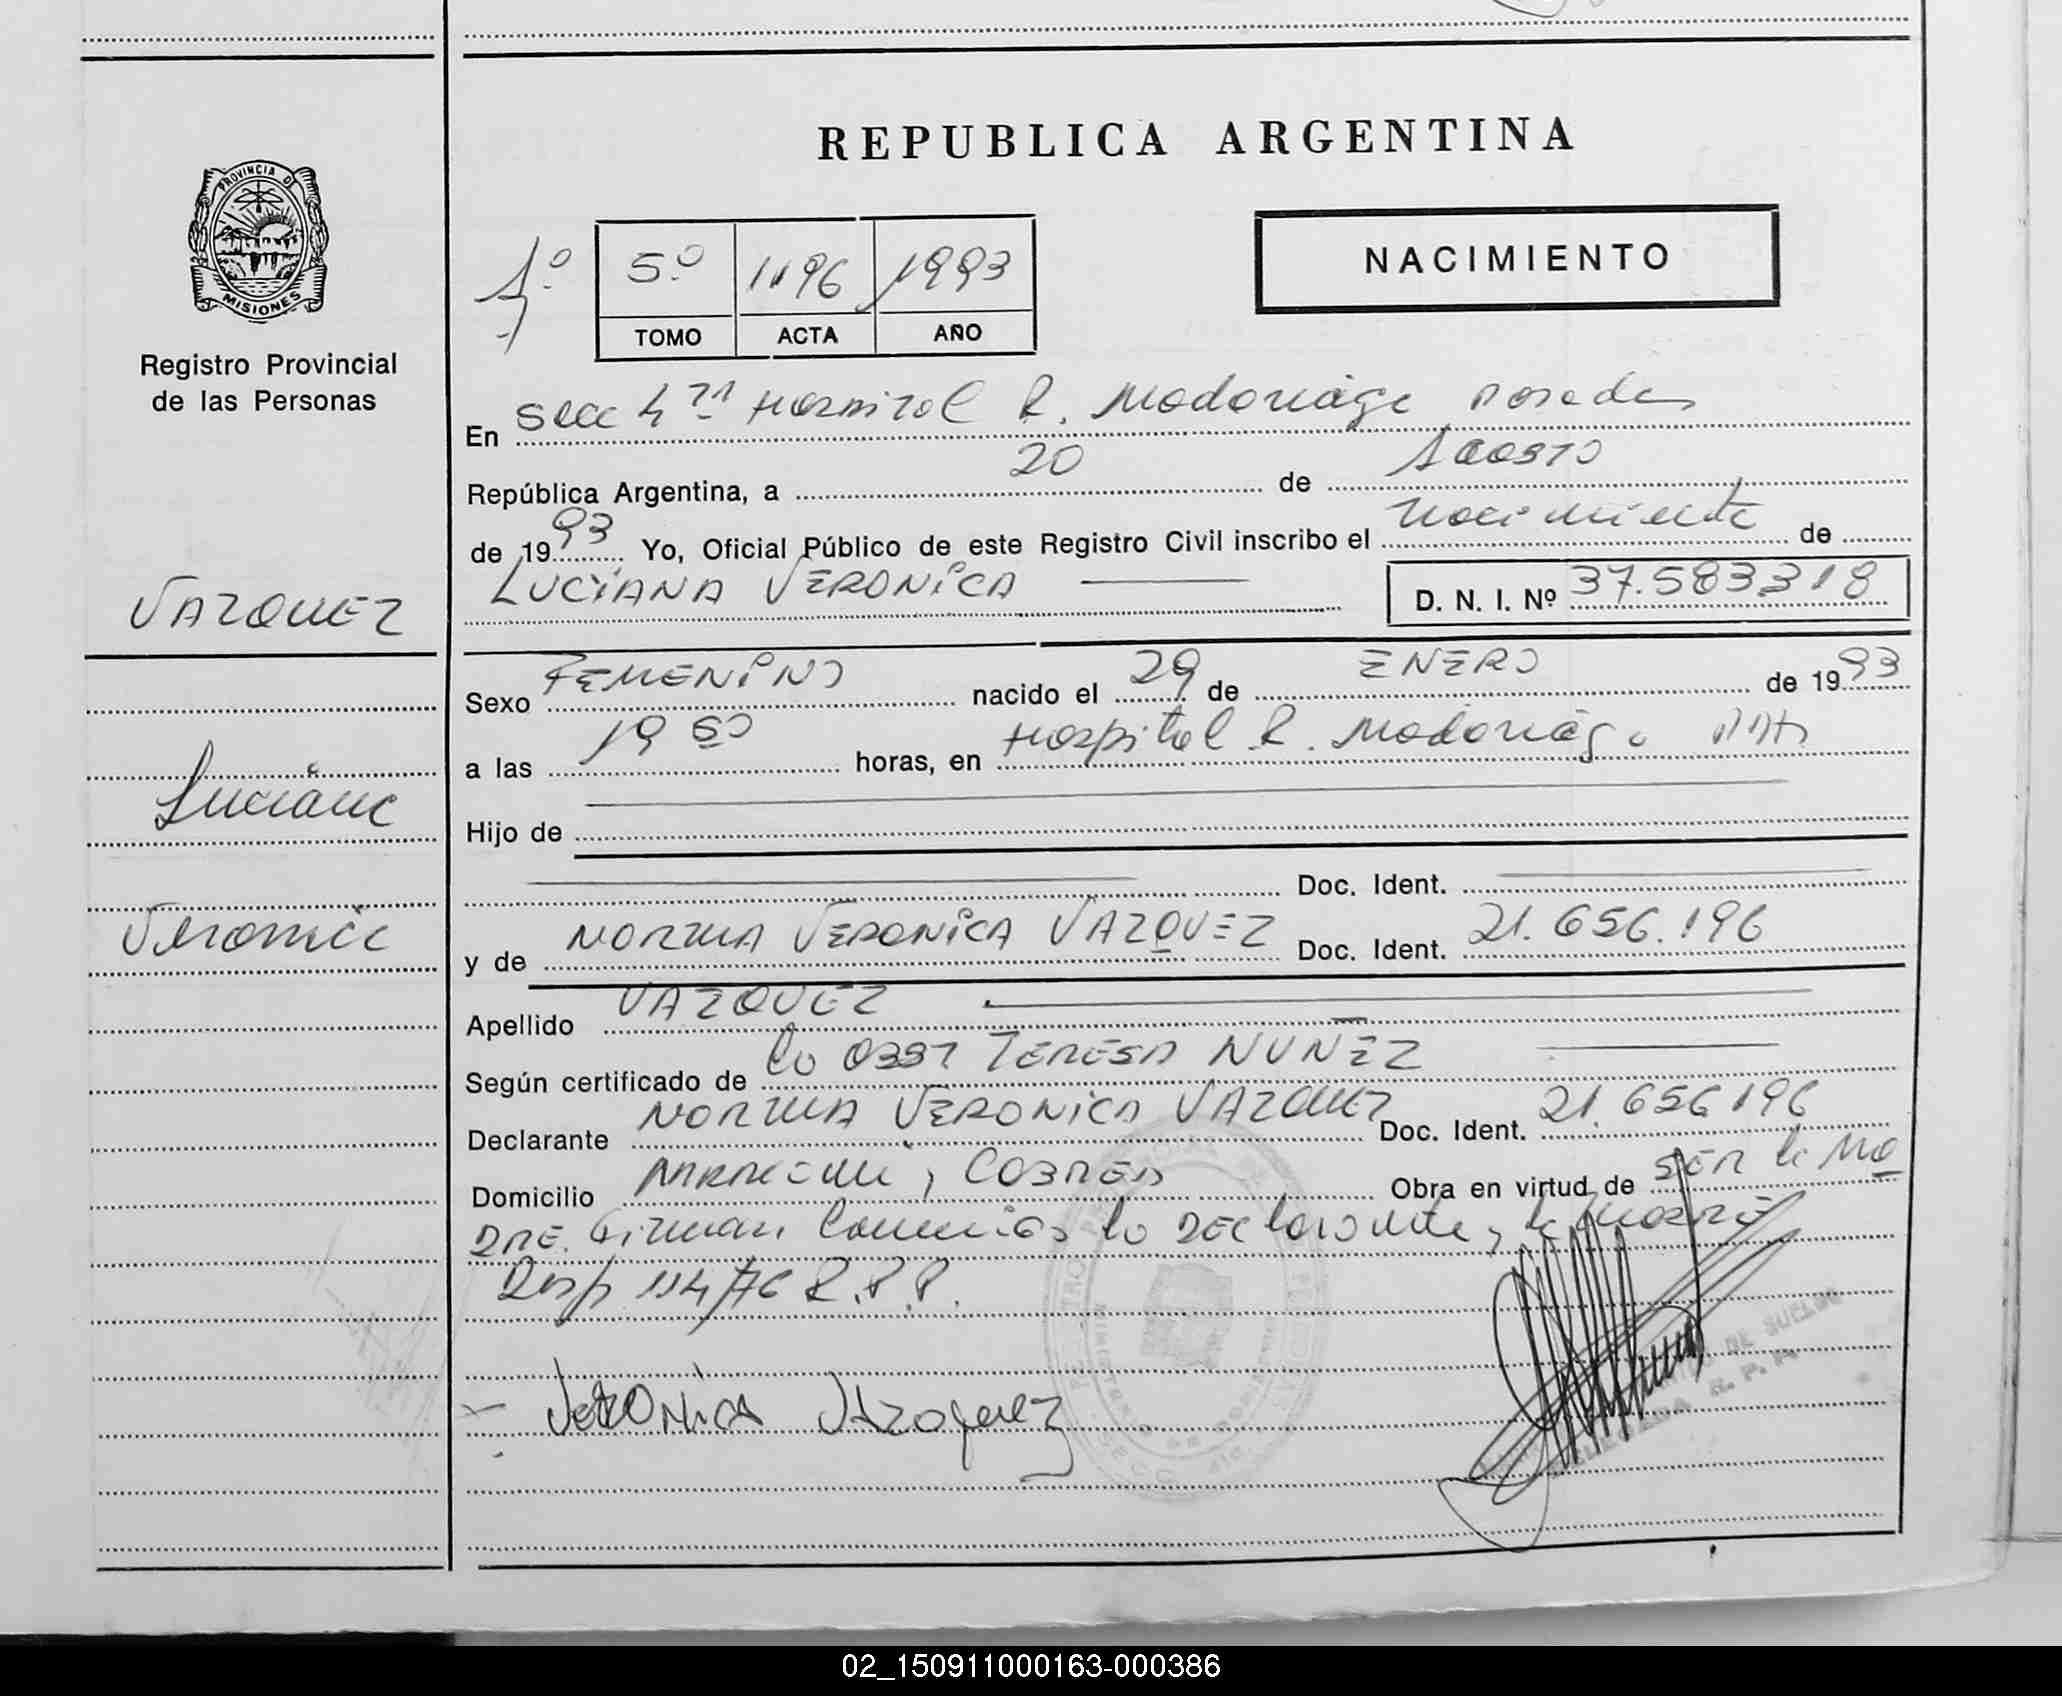 REPUBLICA ARGENTINA
PROVINCIA DE
MISIONES
Registro Provincial
de las Personas
NACIMIENTO
1º 5º 1196 1993
TOMO ACTA AÑO
En Secc 4ta Hospital R. Madariaga Posadas
República Argentina, a 20 de Agosto
de 1993 Yo, Oficial Público de este Registro Civil inscribo el nacimiento de
LUCIANA VERONICA D. N. I. Nº 37.583318
VAZQUEZ
Luciana
Veronica
Sexo FEMENINO nacido el 29 de ENERO de 1993
a las 19 50 horas, en Hospital R. Madariaga
Hijo de
Doc. Ident.
y de NORMA VERONICA VAZQUEZ Doc. Ident. 21.656.196
Apellido VAZQUEZ
Según certificado de la OBST TERESA NUÑEZ
Declarante NORMA VERONICA VAZQUEZ Doc. Ident. 21.656196
Domicilio Obra en virtud de SER la MA
DRE. Firman conmigo la declarante, la madre
Disp 114/76 R.P.P.
Veronica Vazquez
02_150911000163-000386